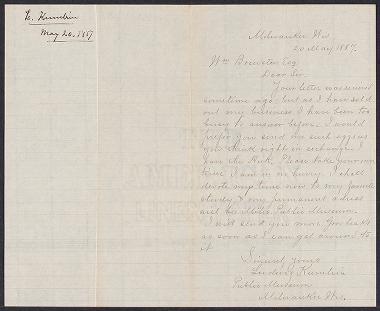 L. Kumlien
May 20, 1887
Milwaukee Wis
20 May 1887.
Wm Brewster Esq
Dear Sir.
Your letter was received
sometime ago. but as I have sold
out my business I have been too
busy to answer before. I would
prefer you send me such eggs as
you think right in exchange. I
have the Ruk. Please take your own
time I am in no hurry. I shall
devote my time now to my favorite
study, & my permanent adress
will be Public Museum.
I will send you more
as soon as I can get around to
it.
Sincerely yours
Ludwig Kumlien
Public Museum
Milwaukee Wis.